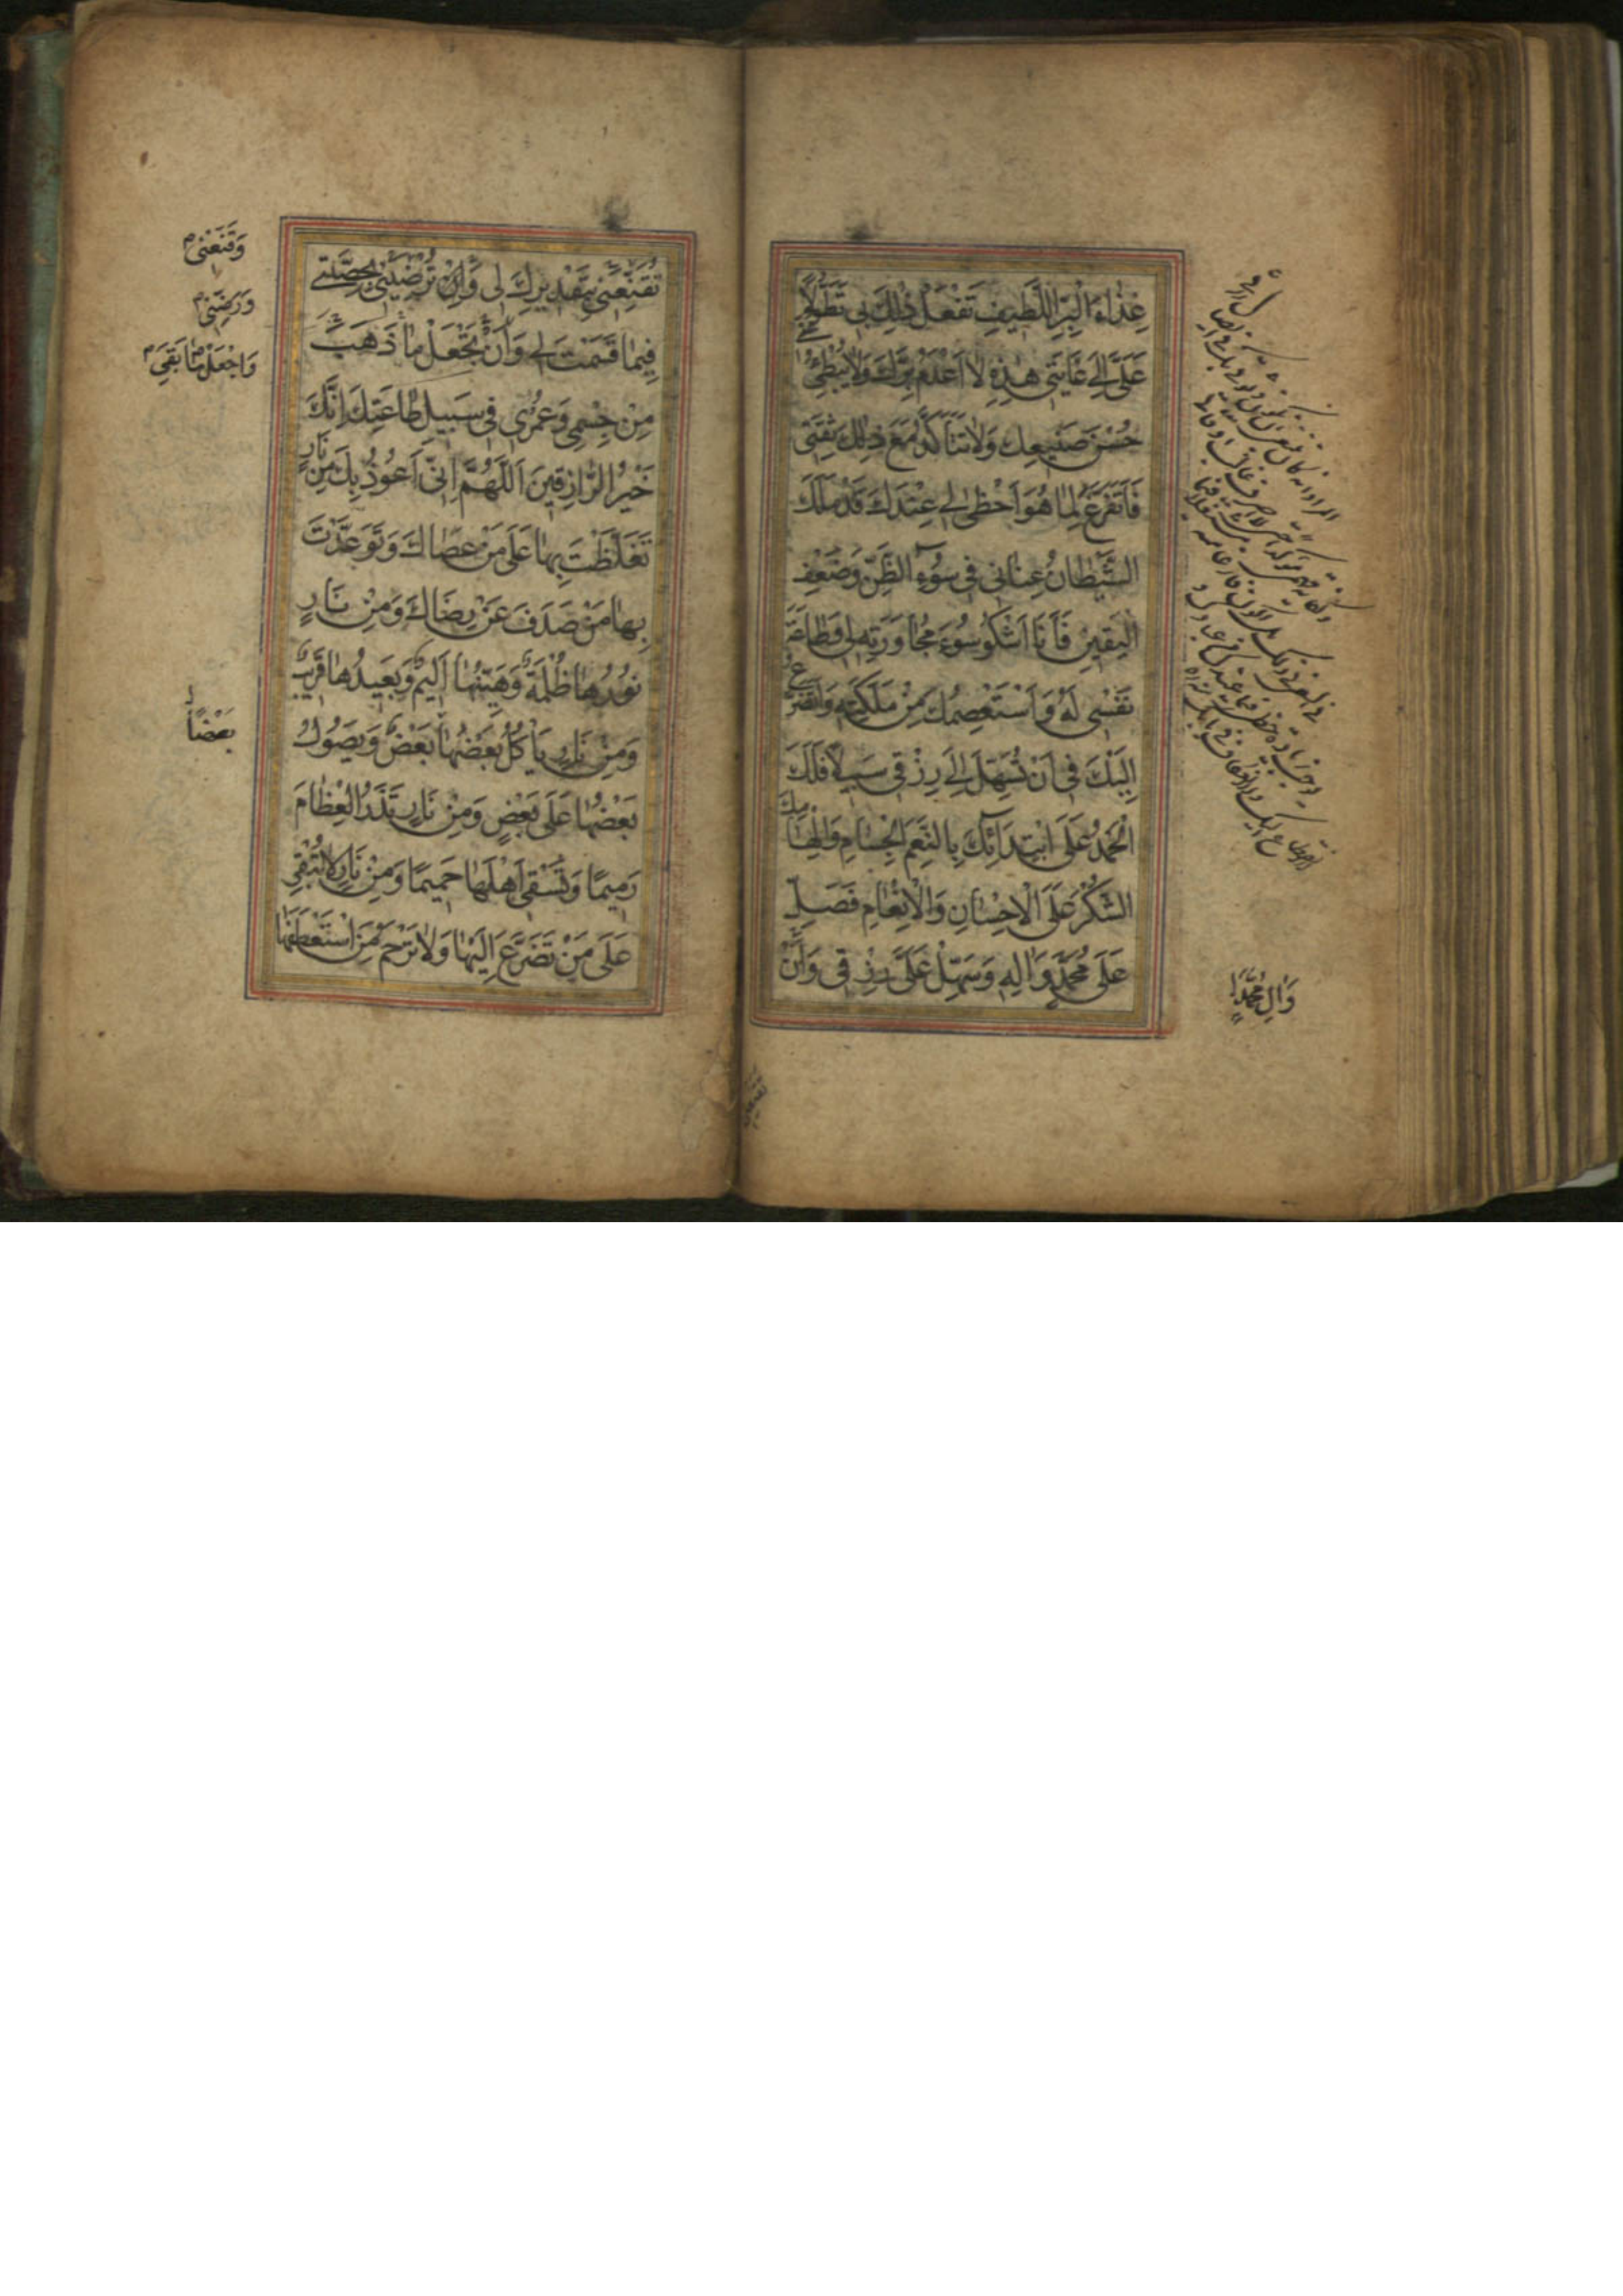 غِذَاءَ الْبَرِّ اللَّطِيفِ تَفْعَلُ ذٰلِكَ بِي تَطَوُّلًا
عَلَيَّ إِلَى غَايَتِي هٰذِهِ لَا أَعْدَمُ بِرَّكَ وَلَا يُبْطِئُ بِي
حُسْنُ صَنِيعِكَ وَلَا تَتَأَكَّدُ مَعَ ذٰلِكَ ثِقَتِي
فَأَتَفَرَّغَ لِمَا هُوَ أَحْظَى لِي عِنْدَكَ قَدْ مَلَكَ
الشَّيْطَانُ عِنَانِي فِي سُوءِ الظَّنِّ وَضَعْفِ
الْيَقِينِ فَأَنَا أَشْكُو سُوءَ مُجَاوَرَتِهِ لِي وَطَاعَةَ
نَفْسِي لَهُ وَأَسْتَعْصِمُكَ مِنْ مَلَكَتِهِ وَأَتَضَرَّعُ
إِلَيْكَ فِي أَنْ تُسَهِّلَ إِلَى رِزْقِي سَبِيلًا فَلَكَ
الْحَمْدُ عَلَى ابْتِدَائِكَ بِالنِّعَمِ الْجِسَامِ وَإِلْهَامِكَ
الشُّكْرَ عَلَى الْإِحْسَانِ وَالْإِنْعَامِ فَصَلِّ
عَلَى مُحَمَّدٍ وَآلِهِ وَسَهِّلْ عَلَيَّ رِزْقِي وَأَنْ
وَآلِ مُحَمَّدٍ
تُقَنِّعَنِي بِتَقْدِيرِكَ لِي وَأَنْ تُرْضِيَنِي بِحِصَّتِي
فِيمَا قَسَمْتَ لِي وَأَنْ تَجْعَلَ مَا ذَهَبَ
مِنْ جِسْمِي وَعُمْرِي فِي سَبِيلِ طَاعَتِكَ إِنَّكَ
خَيْرُ الرَّازِقِينَ اَللّٰهُمَّ إِنِّي أَعُوذُ بِكَ مِنْ نَارٍ
تَغَلَّظْتَ بِهَا عَلَى مَنْ عَصَاكَ وَتَوَعَّدْتَ
بِهَا مَنْ صَدَفَ عَنْ رِضَاكَ وَمِنْ نَارٍ
نُورُهَا ظُلْمَةٌ وَهَيِّنُهَا أَلِيمٌ وَبَعِيدُهَا قَرِيبٌ
وَمِنْ نَارٍ يَأْكُلُ بَعْضَهَا بَعْضٌ وَيَصُولُ
بَعْضُهَا عَلَى بَعْضٍ وَمِنْ نَارٍ تَذَرُ الْعِظَامَ
رَمِيمًا وَتَسْقِي أَهْلَهَا حَمِيمًا وَمِنْ نَارٍ لَا تُبْقِي
عَلَى مَنْ تَضَرَّعَ إِلَيْهَا وَلَا تَرْحَمُ مَنِ اسْتَعْطَفَهَا
وَقَنِّعْنِي
وَرَضِّنِي
وَاجْعَلْ مَا بَقِيَ
بَعْضًا